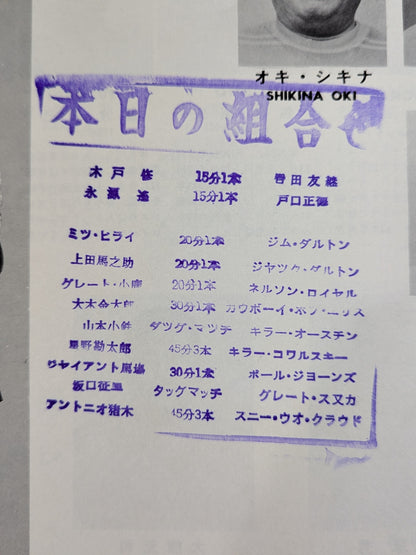 オキ・シキナ
SHIKINA OKI
本日の組合せ
木戸修 15分1本 柴田友継
永源遙 15分1本 戸口正徳
ミツ・ヒライ 20分1本 ジム・ダルトン
上田馬之助 20分1本 ジヤツク・ダルトン
グレート・小鹿 20分1本 ネルソン・ロイヤル
大木金太郎 30分1本 カウボーイ・ボブ・エリス
山本小鉄 タッグ・マッチ キラー・オースチン
星野勘太郎 45分3本 キラー・コワルスキー
ジヤイアント馬場 30分1本 ポール・ジョーンズ
坂口征二 タッグマッチ グレート・スヌカ
アントニオ猪木 45分3本 スニー・ウオ・クラウド